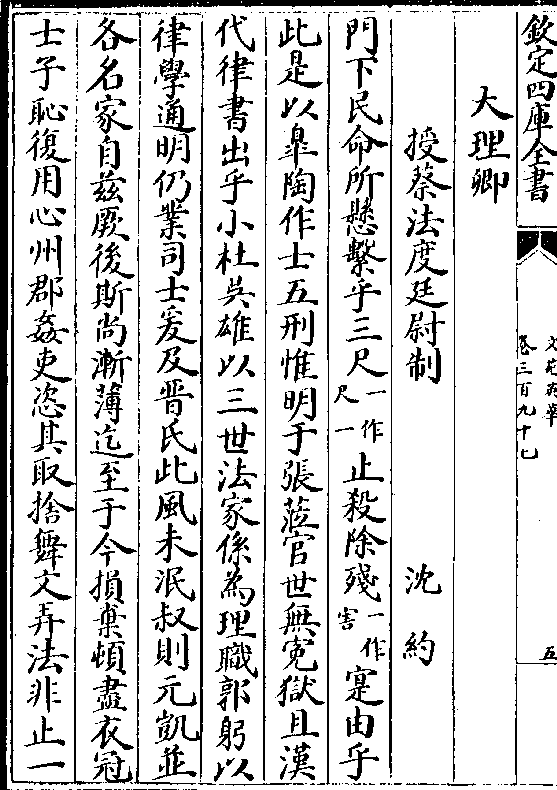 欽定四庫全書
文苑英華
卷三百九十七
五
大理卿
授蔡法度廷尉制
沈約
門下民命所懸繫乎三尺一作尺一止殺除殘一作害寔由乎
此是以臯陶作士五刑惟明于張蒞官世無寃獄且漢
代律書出乎小杜吳雄以三世法家係為理職郭躬以
律學通明仍業司士爰及晋氏此風未泯叔則元凱並
各名家自兹厥後斯尚漸薄迄至于今損棄頓盡衣冠
士子恥復用心州郡姦吏恣其取捨舞文弄法非止一